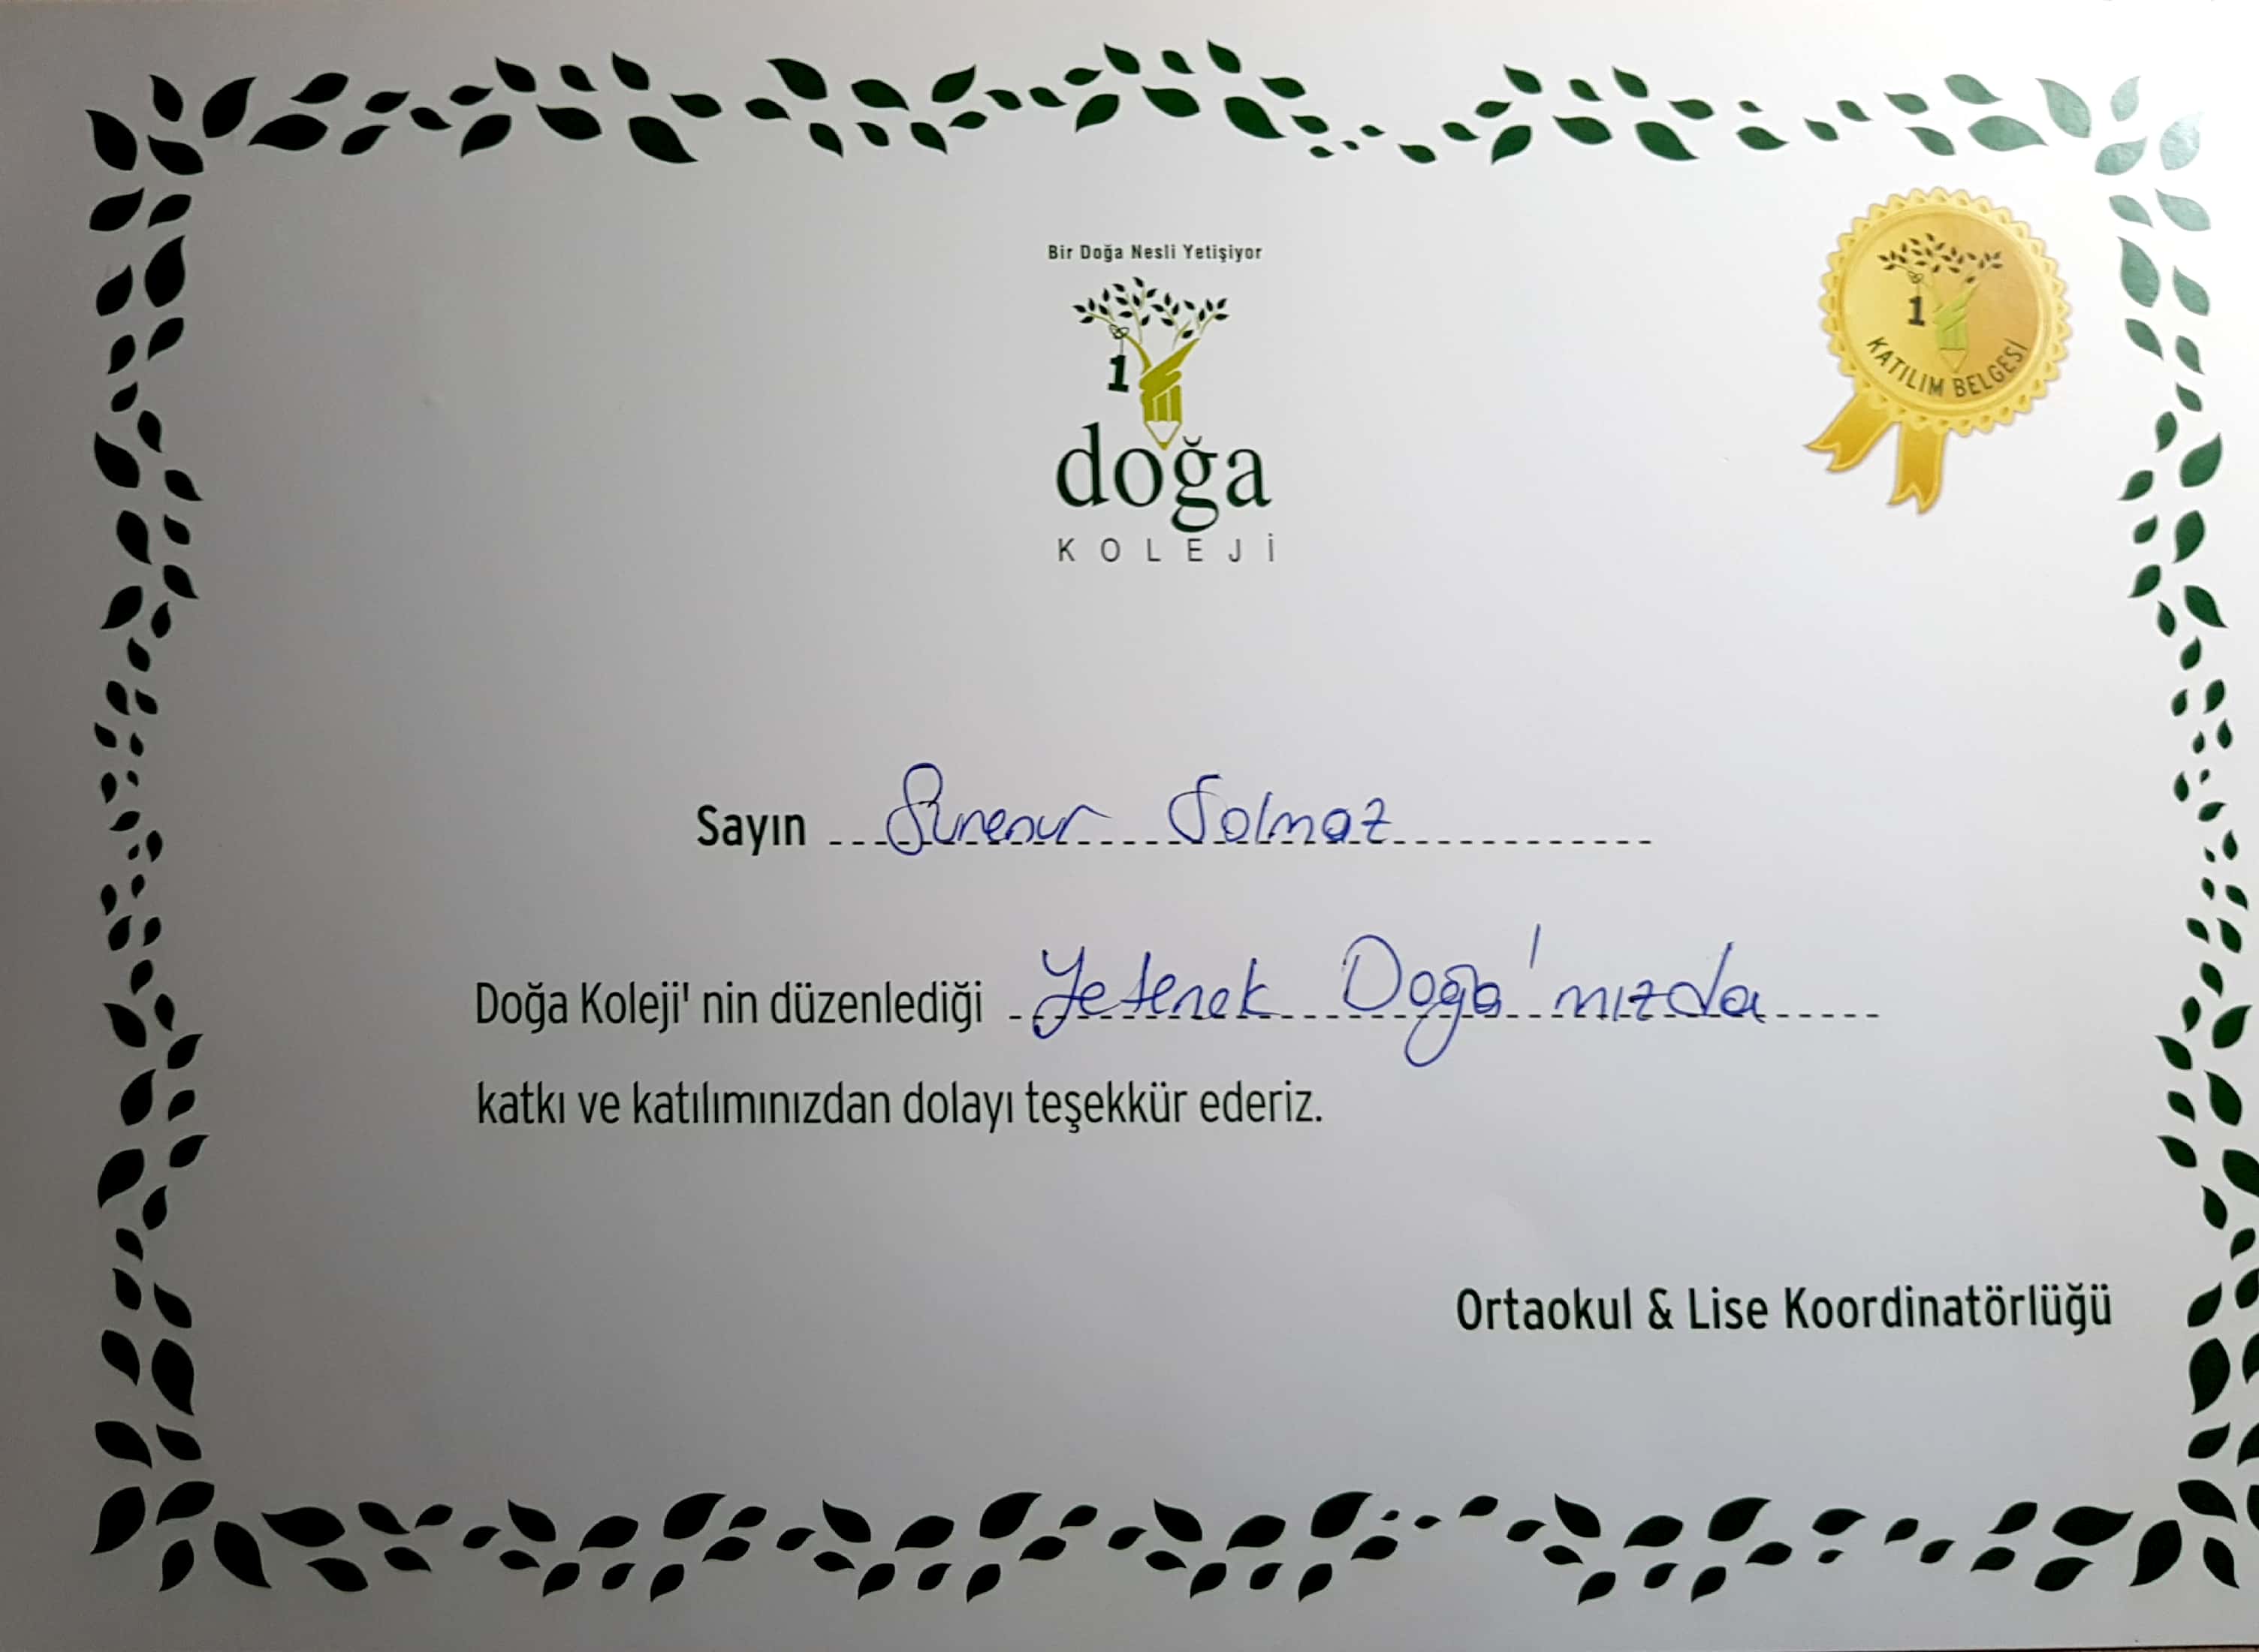 Bir Doğa Nesli Yetişiyor
1
doğa
KOLEJİ
1
KATILIM BELGESİ
Sayın Surenur Solmaz
Doğa Koleji' nin düzenlediği Yetenek Doğa'mızda
katkı ve katılımınızdan dolayı teşekkür ederiz.
Ortaokul & Lise Koordinatörlüğü